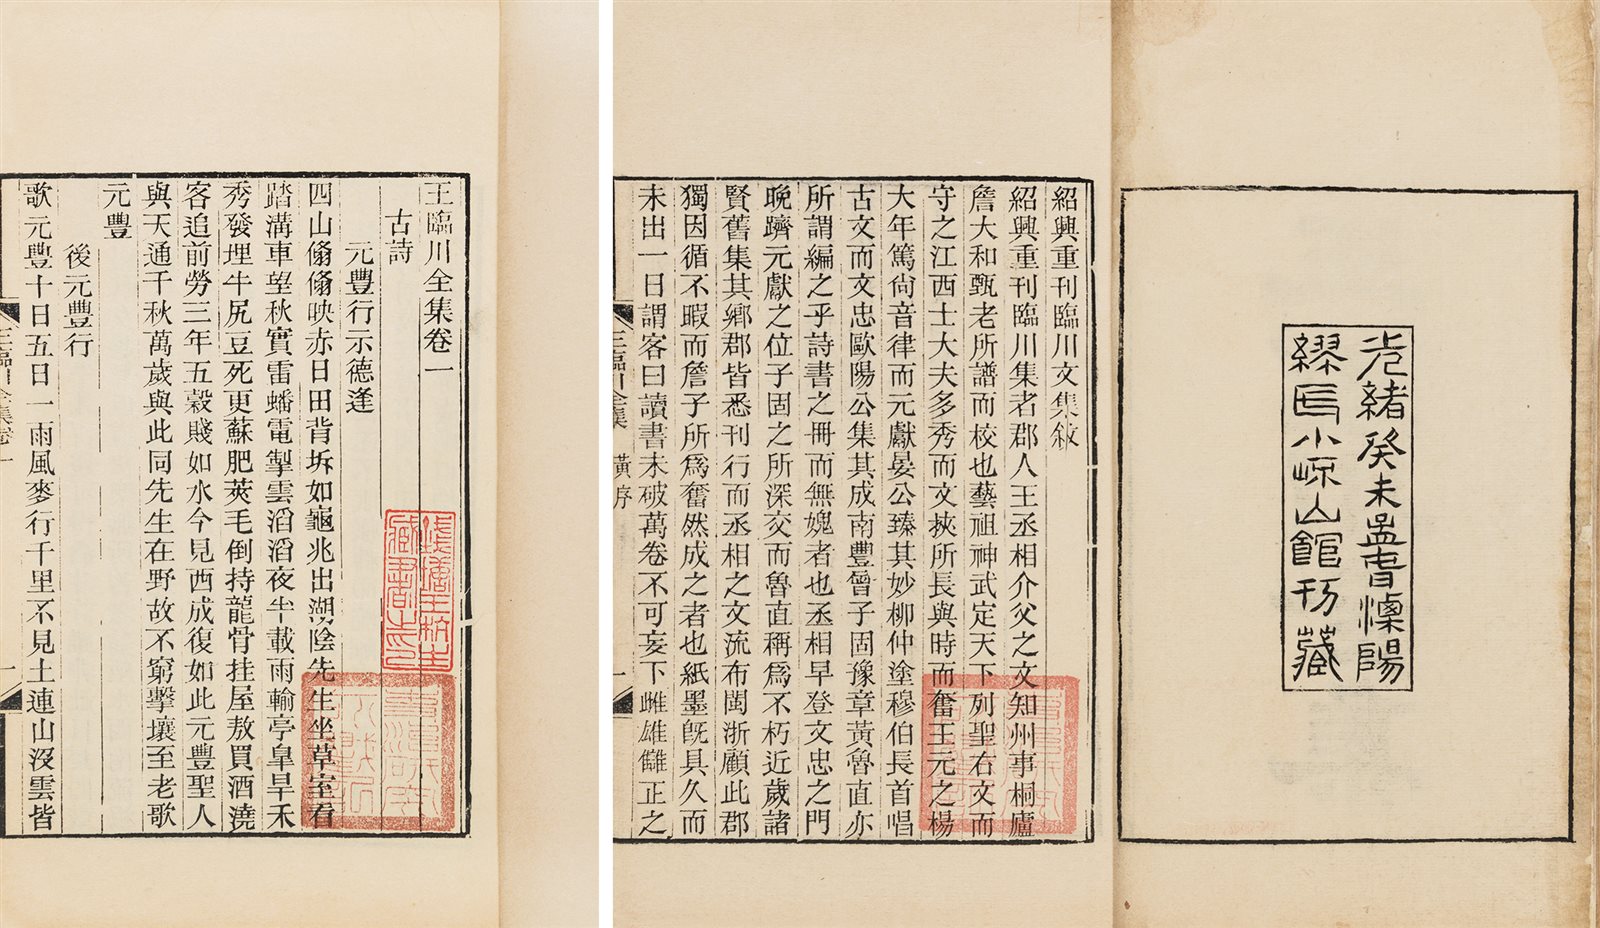 光緒癸未孟春溧陽
繆氏小岯山館刊藏
紹興重刊臨川文集敘
紹興重刊臨川集者郡人王丞相介父之文知州事桐廬
詹大和甄老所譜而校也藝祖神武定天下列聖右文而
守之江西士大夫多秀而文挾所長與時而奮王元之楊
大年篤尙音律而元獻晏公臻其妙柳仲塗穆伯長首唱
古文而文忠歐陽公集其成南豐曾子固豫章黃魯直亦
所謂編之乎詩書之冊而無媿者也丞相早登文忠之門
晚躋元獻之位子固之所深交而魯直稱爲不朽近歲諸
賢舊集其鄉郡皆悉刊行而丞相之文流布閩浙顧此郡
獨因循不暇而詹子所爲奮然成之者也紙墨旣具久而
未出一日謂客曰讀書未破萬卷不可妄下雌雄讎正之
王臨川全集 黃序 一
王臨川全集卷一
古詩
元豐行示德逢
四山翛翛映赤日田背坼如龜兆出湖陰先生坐草室看
踏溝車望秋實雷蟠電掣雲滔滔夜半載雨輸亭臯旱禾
秀發埋牛尻豆死更蘇肥莢毛倒持龍骨挂屋敖買酒澆
客追前勞三年五穀賤如水今見西成復如此元豐聖人
與天通千秋萬歲與此同先生在野故不窮擊壤至老歌
元豐
後元豐行
歌元豐十日五日一雨風麥行千里不見土連山沒雲皆
王臨川全集卷一 一